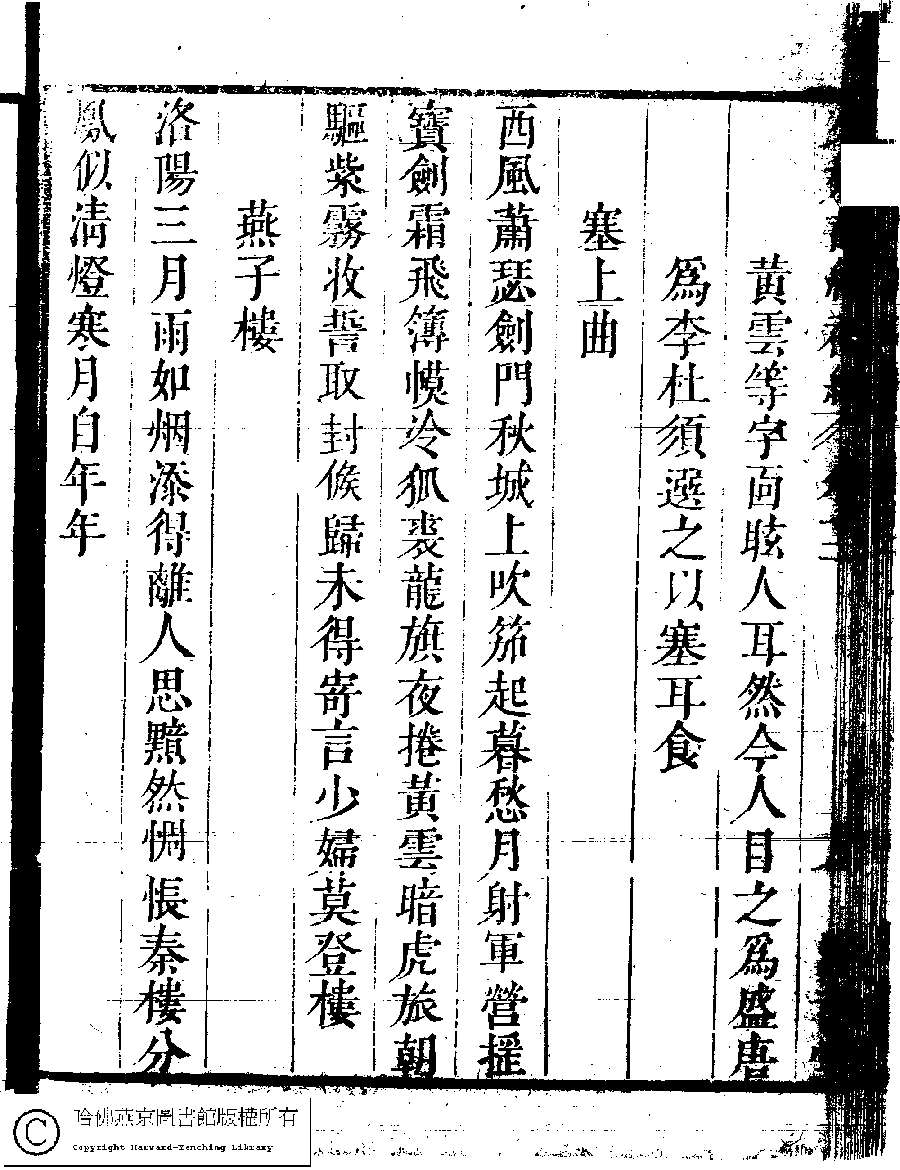 黃雲等字面眩人耳然今人目之爲盛唐
爲李杜須選之以塞耳食
塞上曲
西風蕭瑟劍門秋城上吹笳起暮愁月射軍營摇
寶劍霜飛簿幙冷狐裘龍旗夜捲黃雲暗虎旅朝
驅紫霧收誓取封候歸未得寄言少婦莫登樓
燕子樓
洛陽三月雨如烟添得離人思黯然惆悵秦樓分
鳳似清燈寒月自年年
哈佛燕京圖書館版權所有
Copyright Harvard-Yenching Library